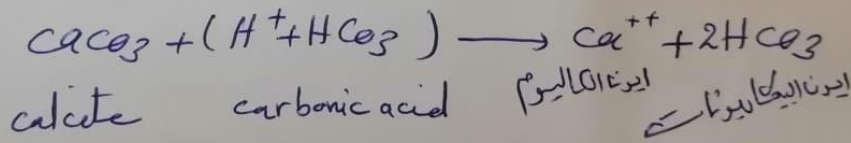 CaCO3 + (H⁺ + HCO3) ⟶ Ca⁺⁺ + 2HCO3
calcite carbonic acid ايونات الكاليوم ايونات البيكاربونات